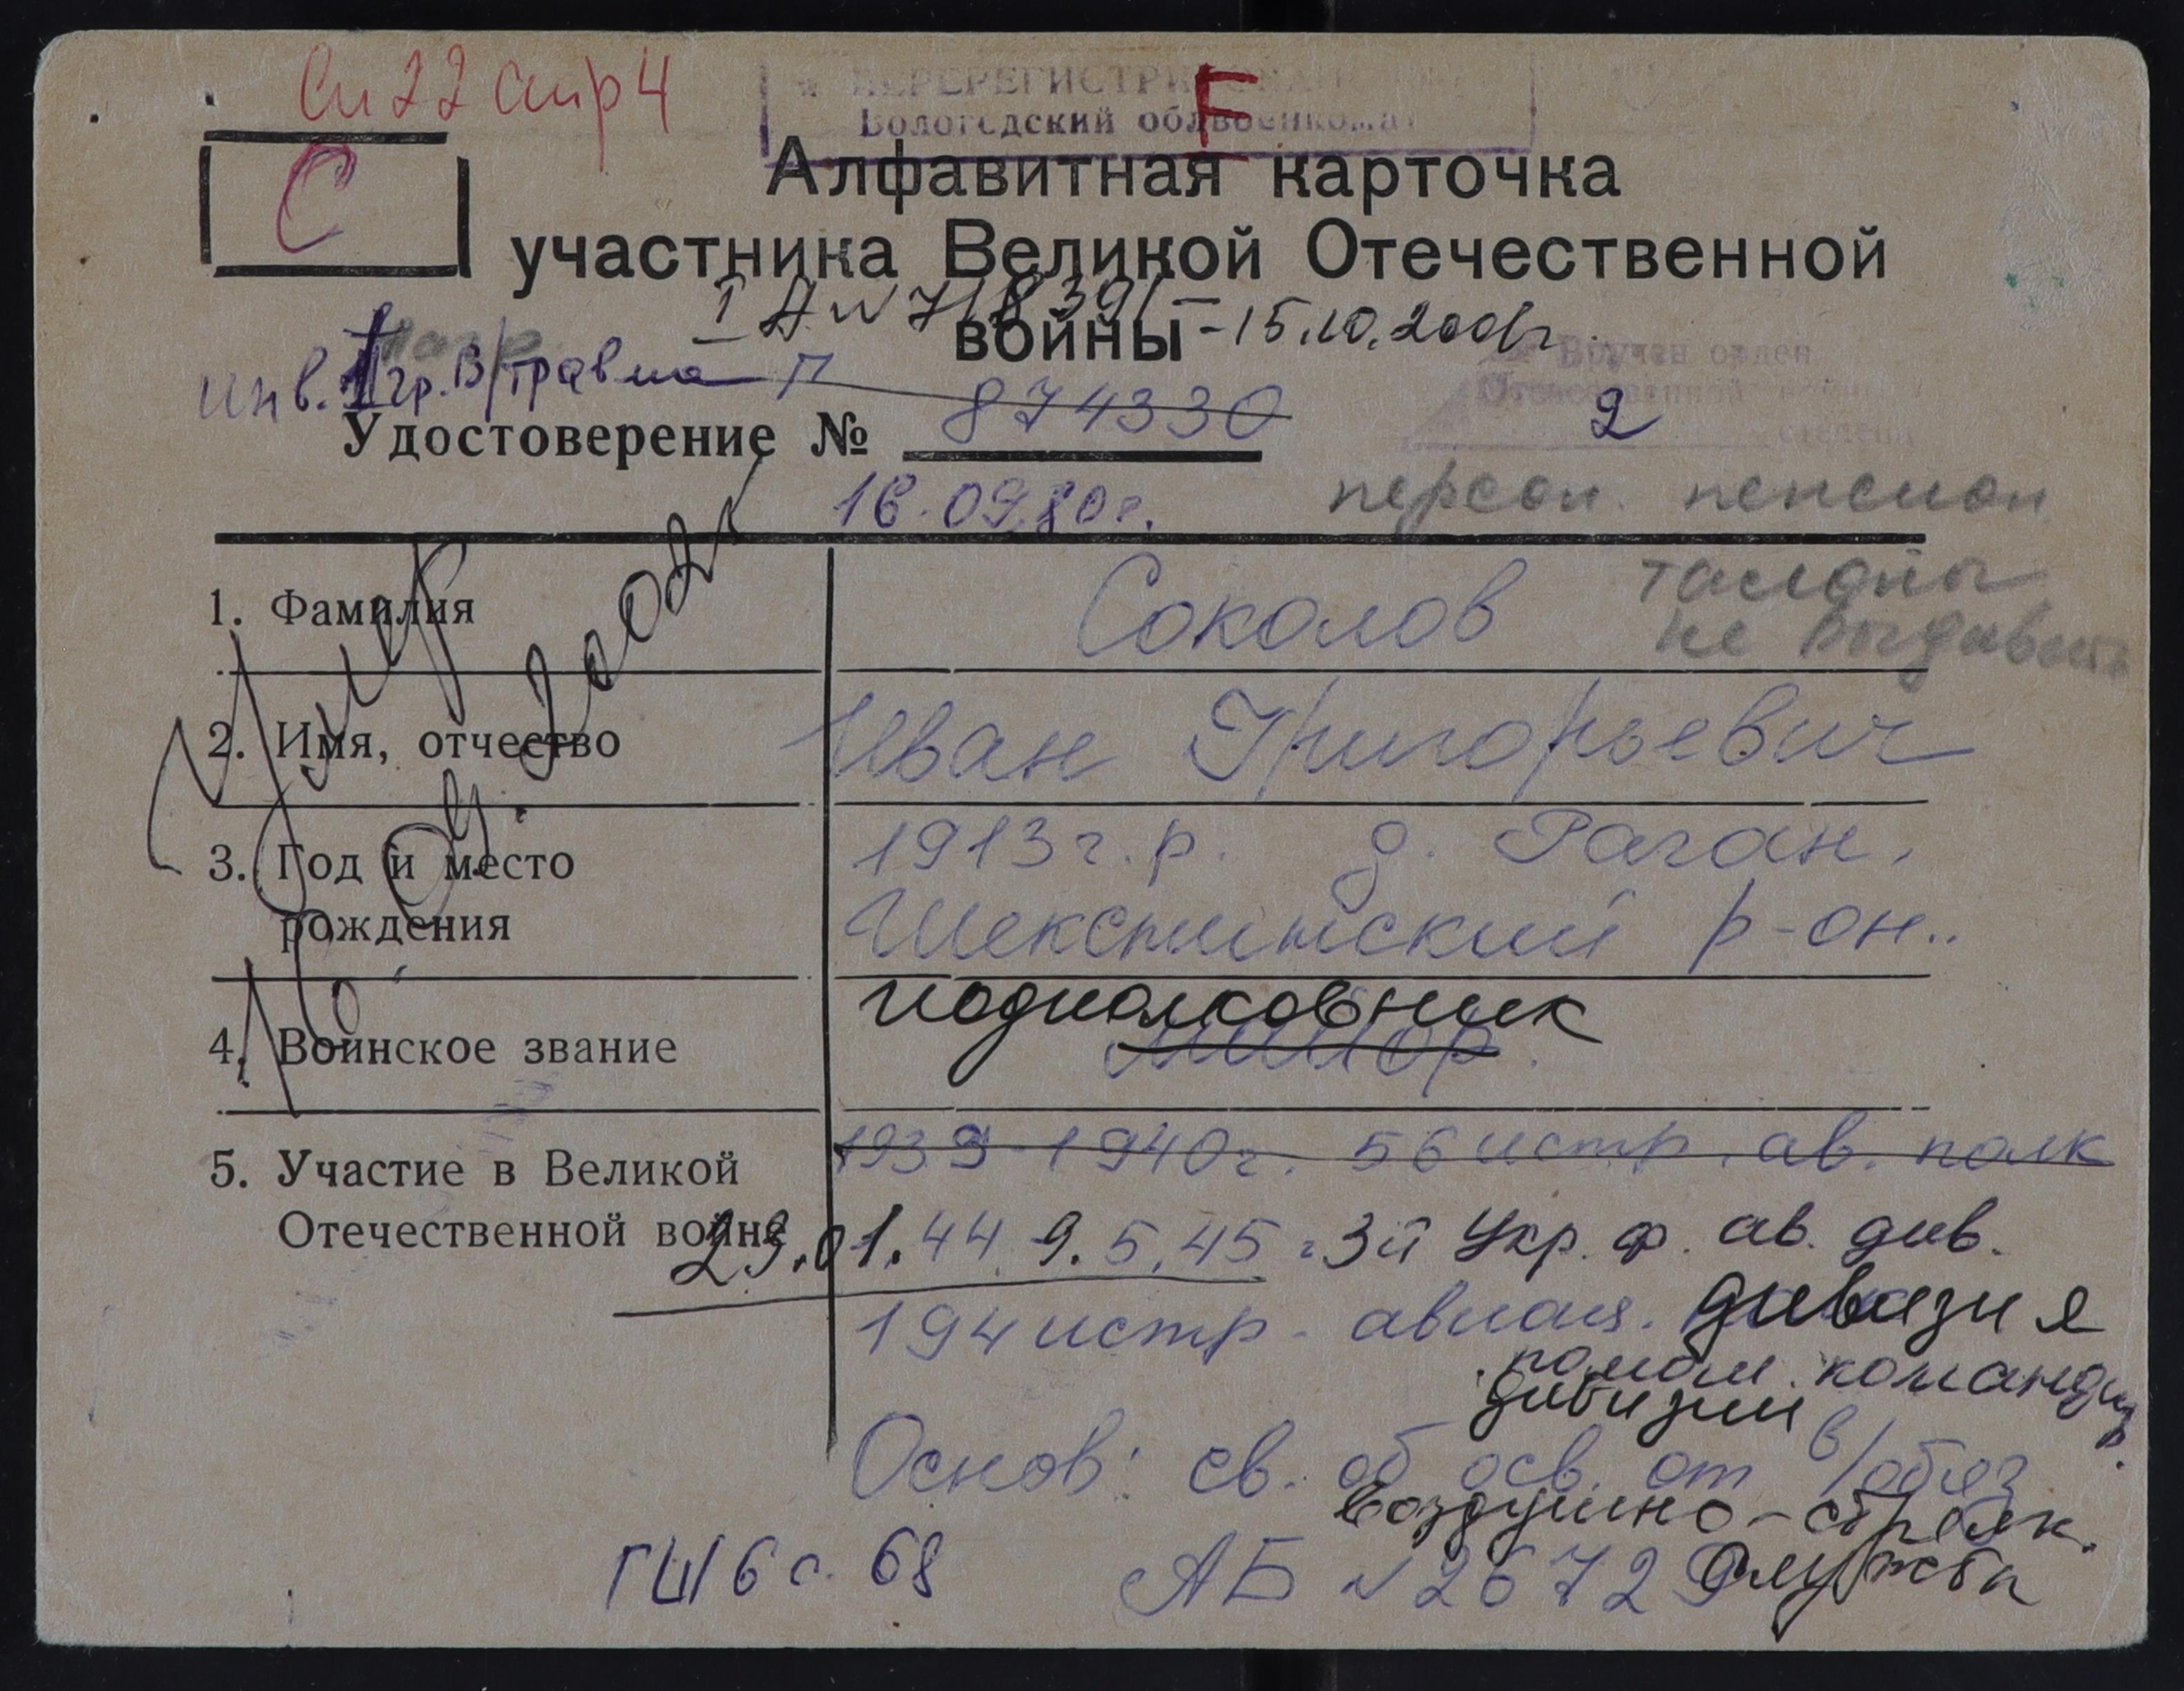 Сп 22 стр 4
ПЕРЕРЕГИСТРИРОВАН
Вологодский облвоенкомат
Е
С
Алфавитная карточка
участника Великой Отечественной
войны
I А № 718391 - 15.10.2001г.
инв. II гр. в/травма П
Вручен орден
Отечественной войны
2 степени
Удостоверение № 874330
16.09.80г.
персон. пенсион
талоны
не выдавать
1. Фамилия
Соколов
2. Имя, отчество
Иван Григорьевич
3. Год и место
рождения
1913 г.р. д. Раган.
Шекснинский р-он..
4. Воинское звание
подполковник
майор.
Умер
09. 2002г
5. Участие в Великой
Отечественной войне
1939-1940г. 56 истр. ав. полк
29.01.44 9.5.45 г. 3й Укр. ф. ав. див.
194 истр. авиац. дивизия
помощ. командир.
дивизии
Основ: св. об осв. от в/обяз
Воздушно-стрелк.
служба
ГШ 6 с. 68
АБ № 26729